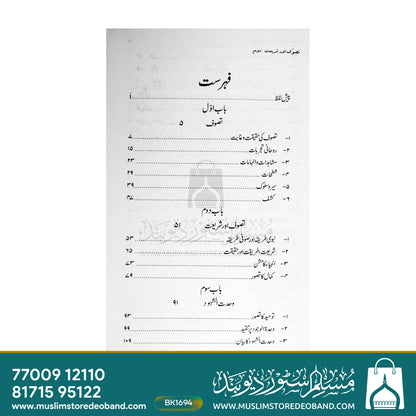 تصوف اور شریعت دوم
فہرست
پیش لفظ i
باب اوّل
تصوف ۵
۱- تصوف کی حقیقت و غایت ۷
۲- روحانی تجربات ۱۵
۳- مشاہدات و الہامات ۲۳
۴- شطحات ۲۹
۵- سیر و سلوک ۳۹
۶- کشف ۴۷
باب دوم
تصوف اور شریعت ۵۱
۱- نبوی طریقہ اور صوفی طریقہ ۵۳
۲- شریعت، طریقت اور حقیقت ۶۵
۳- انبیاء کا مشن ۷۳
۴- کمال کا تصور ۷۹
باب سوم
وحدت الشہود ۹۱
۱- توحید کا تصور ۹۳
۲- وحدۃ الوجود پر تنقید ۹۹
۳- وحدت الشہود کا بیان ۱۰۹
مسلم سٹور دیوبند
77009 12110
81715 95122
BK1694
www.muslimstoredeoband.com
WWW.MUSLIMSTOREDEOBAND.COM